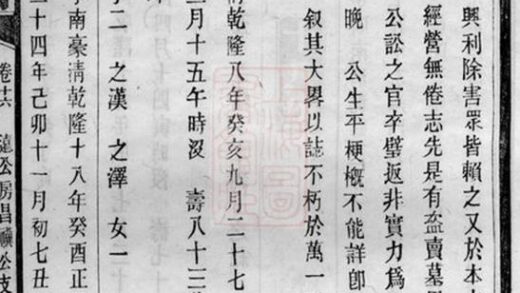 興利除害眾皆賴之又於本
經營無倦志先是有盜賣墓
公訟之官卒璧返非實力爲
晚 公生平梗概不能詳卽
叙其大畧以誌不朽於萬一
清乾隆八年癸亥九月二十七
三月十五午時沒 壽八十三
子二 之漢 之澤 女一
南豪清乾隆十八年癸酉正
二十四年己卯十一月初七丑
卷十六 蘧公房昌續公支